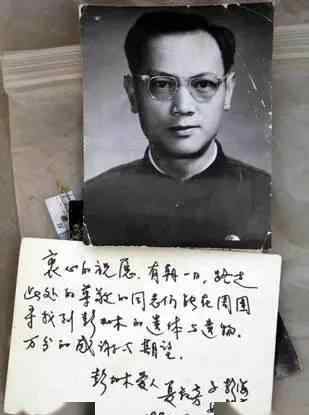 衷心的祝愿，有朝一日，路过
此处的尊敬的同志们能在周围
寻找到彭加木的遗体与遗物。
万分的感谢与期望。
彭加木爱人 夏叔芳 子 彭海